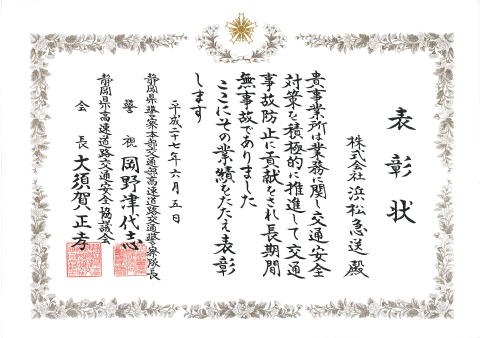 表彰状
株式会社浜松急送殿
貴事業所は業務に関し交通安全
対策を積極的に推進して交通
事故防止に貢献をされ長期間
無事故でありました
ここにその業績をたたえ表彰
します
平成二十七年六月五日
静岡県警察本部交通部高速道路交通警察隊長
警視 岡野津代志
静岡県高速道路交通安全協議会
会長 大須賀正孝